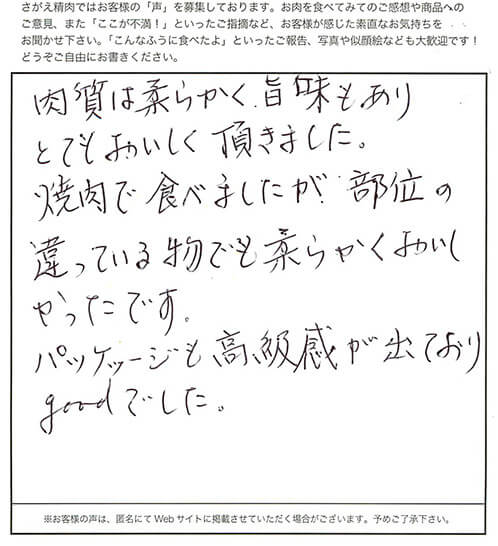 さがえ精肉ではお客様の「声」を募集しております。お肉を食べてみてのご感想や商品への
ご意見、また「ここが不満！」といったご指摘など、お客様が感じた素直なお気持ちを
お聞かせ下さい。「こんなふうに食べたよ」といったご報告、写真や似顔絵なども大歓迎です！
どうぞご自由にお書きください。
肉質は柔らかく、旨味もあり
とてもおいしく頂きました。
焼肉で食べましたが、部位の
違っている物でも柔らかくおいし
かったです。
パッケージも高級感が出ており
goodでした。
※お客様の声は、匿名にてWebサイトに掲載させていただく場合がございます。予めご了承下さい。